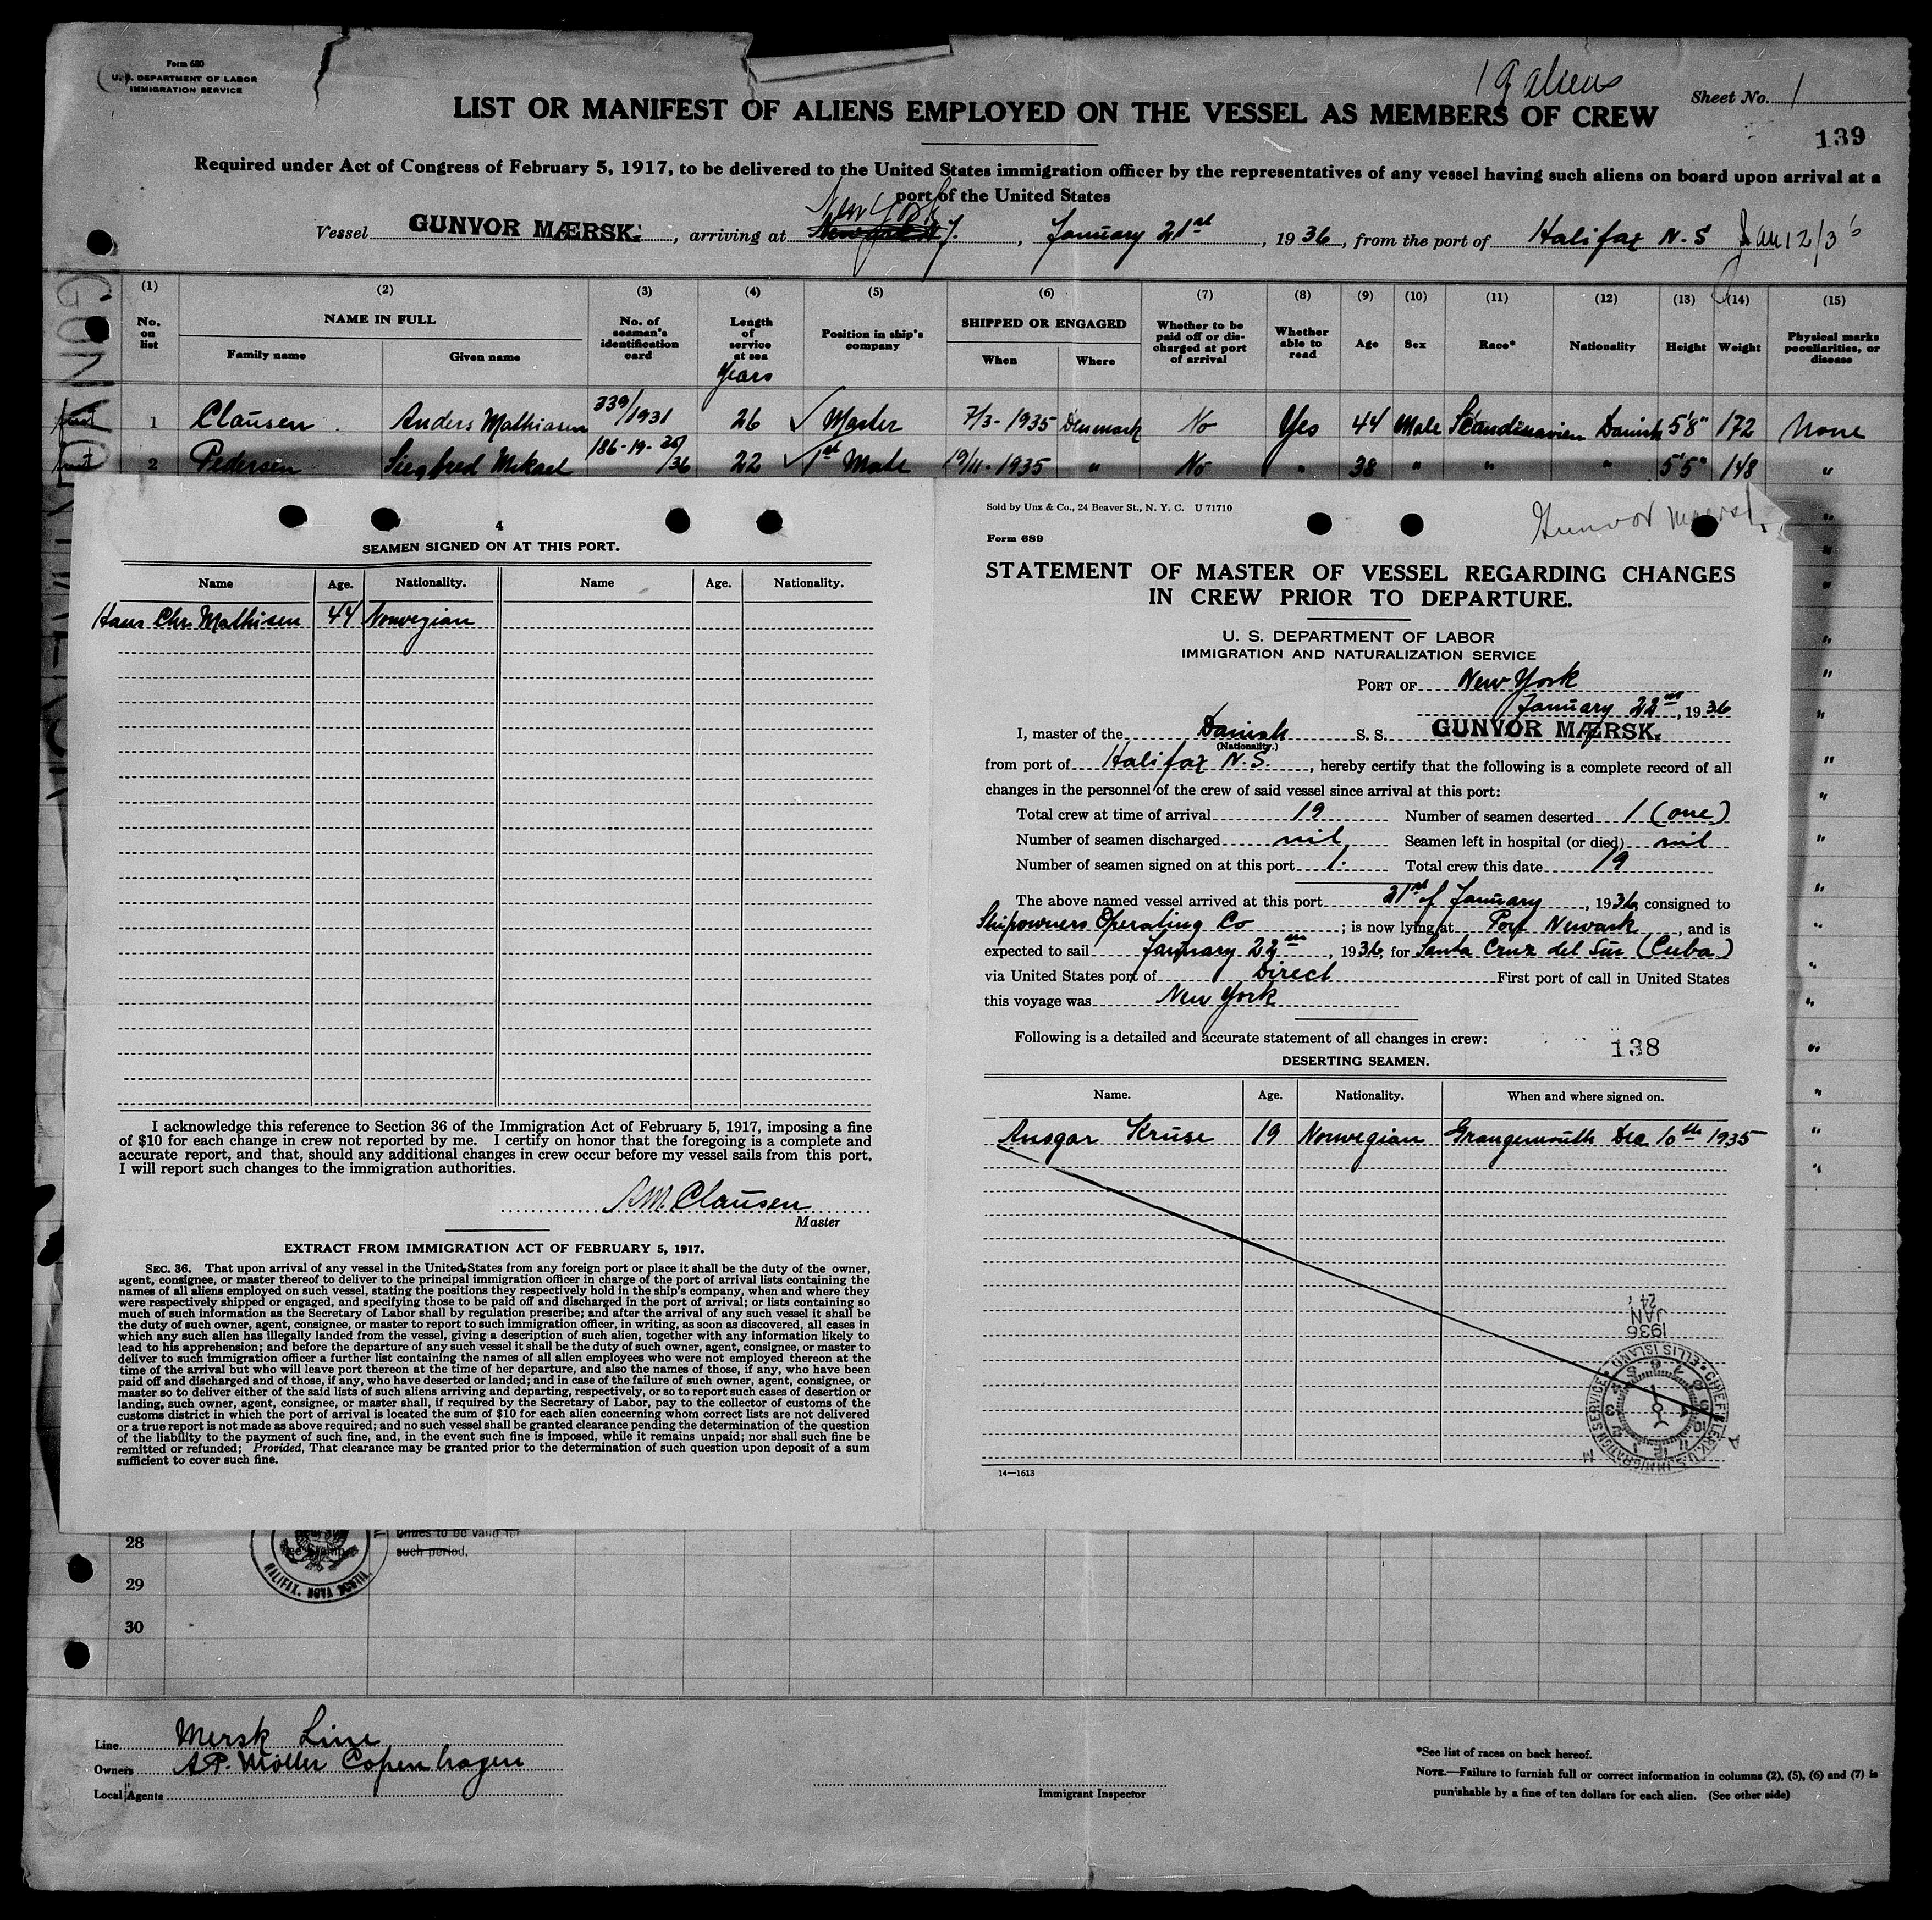 Form 680
U. S. DEPARTMENT OF LABOR
IMMIGRATION SERVICE
19 aliens
Sheet No. 1
LIST OR MANIFEST OF ALIENS EMPLOYED ON THE VESSEL AS MEMBERS OF CREW
139
Required under Act of Congress of February 5, 1917, to be delivered to the United States immigration officer by the representatives of any vessel having such aliens on board upon arrival at a
port of the United States
New York
Vessel GUNVOR MÆRSK. , arriving at , January 21st , 1936, from the port of Halifax N. S
(1) (2) (3) (4) (5) (6) (7) (8) (9) (10) (11) (12) (13) (14) (15)
No. on list
NAME IN FULL
Family name
Given name
No. of seaman's identification card
Length of service at sea
Years
Position in ship's company
SHIPPED OR ENGAGED
When
Where
Whether to be paid off or discharged at port of arrival
Whether able to read
Age
Sex
Race*
Nationality
Height
Weight
Physical marks peculiarities, or disease
1 Clausen Anders Mathiasen 339/1931 26 Master 7/3-1935 Denmark No Yes 44 Male Scandinavien Danish 5'8" 172 None
2 Pedersen Siegfred Mikael 22 1st Mate 19/11-1935 " No " 38 " " " 5'5" 148 "
4
SEAMEN SIGNED ON AT THIS PORT.
Name Age. Nationality. Name Age. Nationality.
Hans Chr. Mathisen 44 Norwegian
I acknowledge this reference to Section 36 of the Immigration Act of February 5, 1917, imposing a fine
of $10 for each change in crew not reported by me. I certify on honor that the foregoing is a complete and
accurate report, and that, should any additional changes in crew occur before my vessel sails from this port,
I will report such changes to the immigration authorities.
A M. Clausen
Master
EXTRACT FROM IMMIGRATION ACT OF FEBRUARY 5, 1917.
SEC. 36. That upon arrival of any vessel in the United States from any foreign port or place it shall be the duty of the owner,
agent, consignee, or master thereof to deliver to the principal immigration officer in charge of the port of arrival lists containing the
names of all aliens employed on such vessel, stating the positions they respectively hold in the ship's company, when and where they
were respectively shipped or engaged, and specifying those to be paid off and discharged in the port of arrival; or lists containing so
much of such information as the Secretary of Labor shall by regulation prescribe; and after the arrival of any such vessel it shall be
the duty of such owner, agent, consignee, or master to report to such immigration officer, in writing, as soon as discovered, all cases in
which any such alien has illegally landed from the vessel, giving a description of such alien, together with any information likely to
lead to his apprehension; and before the departure of any such vessel it shall be the duty of such owner, agent, consignee, or master to
deliver to such immigration officer a further list containing the names of all alien employees who were not employed thereon at the
time of the arrival but who will leave port thereon at the time of her departure, and also the names of those, if any, who have been
paid off and discharged and of those, if any, who have deserted or landed; and in case of the failure of such owner, agent, consignee, or
master so to deliver either of the said lists of such aliens arriving and departing, respectively, or so to report such cases of desertion or
landing, such owner, agent, consignee, or master shall, if required by the Secretary of Labor, pay to the collector of customs of the
customs district in which the port of arrival is located the sum of $10 for each alien concerning whom correct lists are not delivered
or a true report is not made as above required; and no such vessel shall be granted clearance pending the determination of the question
of the liability to the payment of such fine, and, in the event such fine is imposed, while it remains unpaid; nor shall such fine be
remitted or refunded; Provided, That clearance may be granted prior to the determination of such question upon deposit of a sum
sufficient to cover such fine.
Sold by Unz & Co., 24 Beaver St., N. Y. C. U 71710
Gunvor Maersk
Form 689
STATEMENT OF MASTER OF VESSEL REGARDING CHANGES
IN CREW PRIOR TO DEPARTURE.
U. S. DEPARTMENT OF LABOR
IMMIGRATION AND NATURALIZATION SERVICE
PORT OF New York
January 22nd, 1936
I, master of the Danish S. S. GUNVOR MÆRSK.
(Nationality.)
from port of Halifax N. S. , hereby certify that the following is a complete record of all
changes in the personnel of the crew of said vessel since arrival at this port:
Total crew at time of arrival 19 Number of seamen deserted 1 (one)
Number of seamen discharged nil Seamen left in hospital (or died) nil
Number of seamen signed on at this port 1. Total crew this date 19
The above named vessel arrived at this port 21st of January , 1936, consigned to
Shipowners Operating Co ; is now lying at Port Newark , and is
expected to sail January 22nd , 1936, for Santa Cruz del Sur (Cuba)
via United States port of Direct First port of call in United States
this voyage was New York
Following is a detailed and accurate statement of all changes in crew:
138
DESERTING SEAMEN.
Name. Age. Nationality. When and where signed on.
Ansgar Kruse 19 Norwegian Grangemouth Dec 10th 1935
1936 JAN 24
CHIEF CLERK U.S. IMMIGRATION SERVICE ELLIS ISLAND
14—1613
28
such period.
HALIFAX, NOVA SCOTIA
29
30
Line Mersk Line
Owners A.P. Möller Copenhagen
Local Agents
Immigrant Inspector
*See list of races on back hereof.
NOTE.—Failure to furnish full or correct information in columns (2), (5), (6) and (7) is
punishable by a fine of ten dollars for each alien. (See other side)